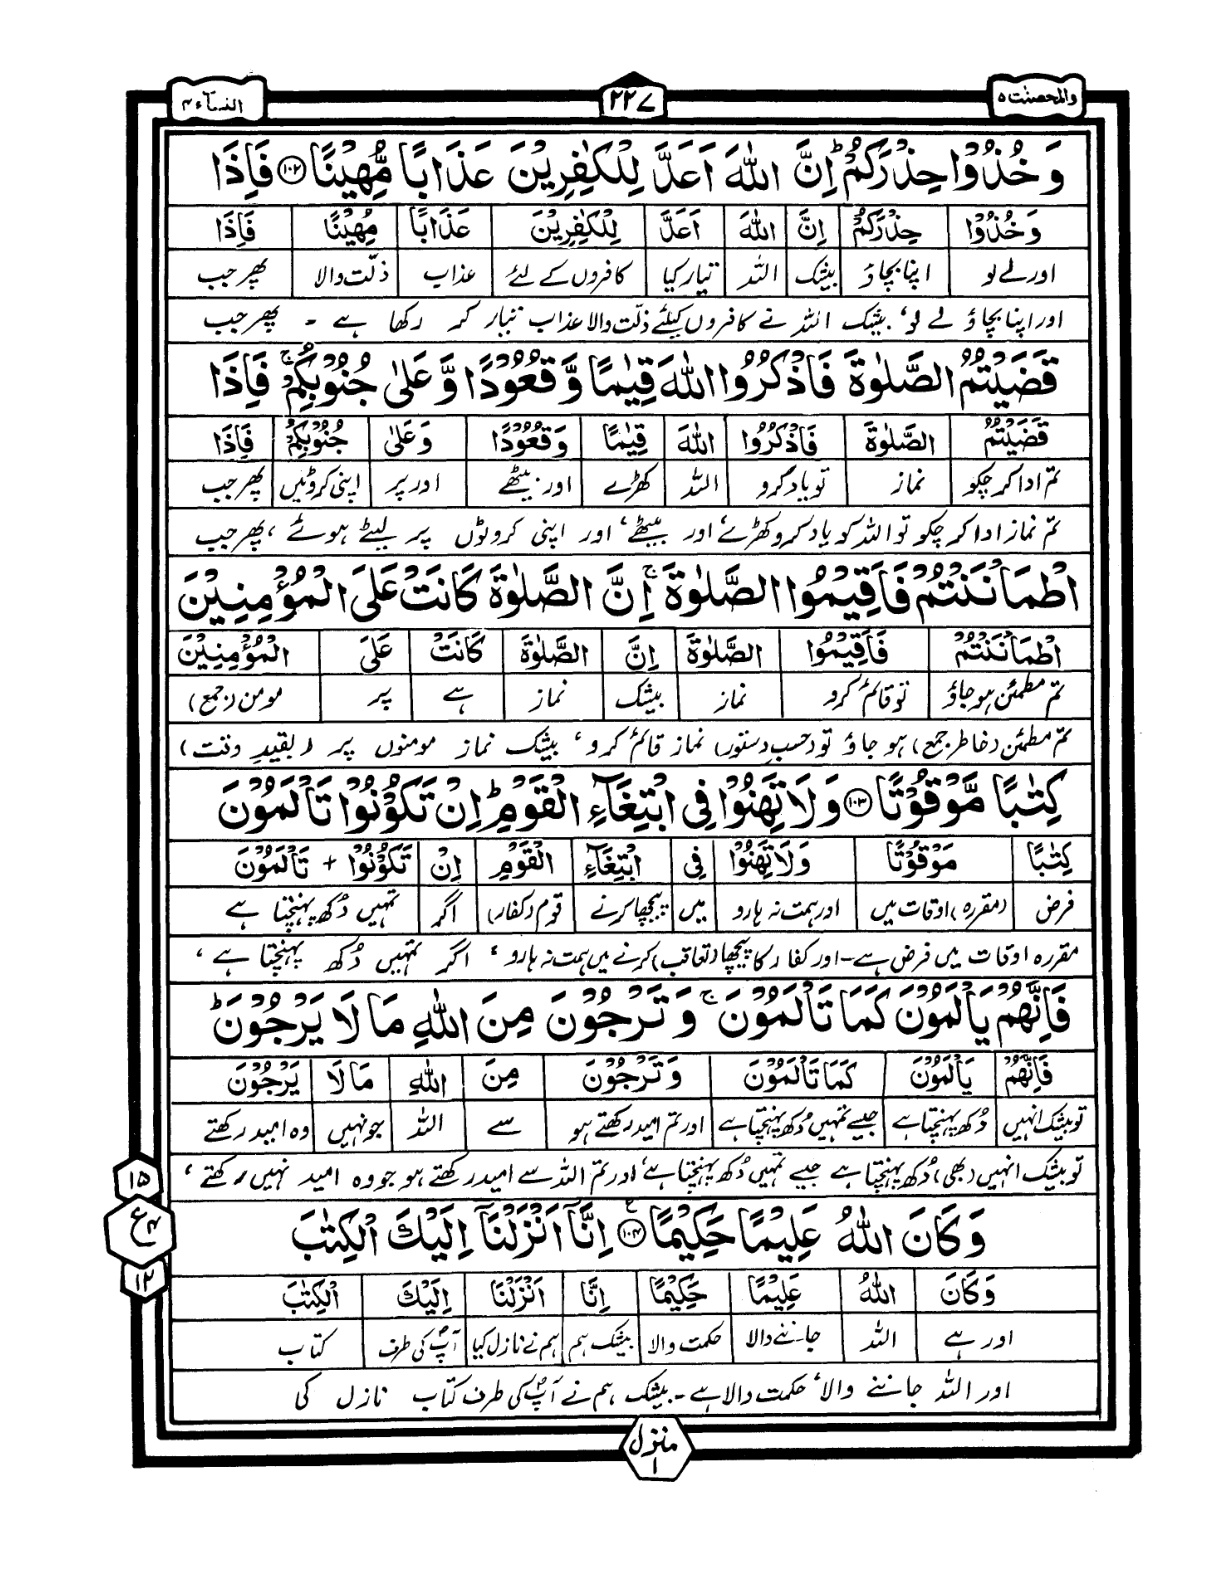 والمحصنٰت ۵
۲۲۷
النسآء ۴
وَخُذُوْا حِذْرَكُمْ ؕ اِنَّ اللّٰهَ اَعَدَّ لِلْكٰفِرِيْنَ عَذَابًا مُّهِيْنًا ۝۱۰۲ فَاِذَا
وَخُذُوْا حِذْرَكُمْ اِنَّ اللّٰهَ اَعَدَّ لِلْكٰفِرِيْنَ عَذَابًا مُهِيْنًا فَاِذَا
اور لے لو اپنا بچاؤ بیشک اللہ تیار کیا کافروں کے لئے عذاب ذلّت والا پھر جب
اور اپنا بچاؤ لے لو، بیشک اللہ نے کافروں کیلئے ذلّت والا عذاب تیار کر رکھا ہے ۔ پھر جب
قَضَيْتُمُ الصَّلٰوةَ فَاذْكُرُوا اللّٰهَ قِيٰمًا وَّقُعُوْدًا وَّعَلٰى جُنُوْبِكُمْ ۚ فَاِذَا
قَضَيْتُمُ الصَّلٰوةَ فَاذْكُرُوا اللّٰهَ قِيٰمًا وَقُعُوْدًا وَعَلٰى جُنُوْبِكُمْ فَاِذَا
تم ادا کر چکو نماز تو یاد کرو اللہ کھڑے اور بیٹھے اور پر اپنی کروٹیں پھر جب
تم نماز ادا کر چکو تو اللہ کو یاد کرو کھڑے، اور بیٹھے، اور اپنی کروٹوں پر لیٹے ہوئے، پھر جب
اطْمَاْنَنْتُمْ فَاَقِيْمُوا الصَّلٰوةَ ۚ اِنَّ الصَّلٰوةَ كَانَتْ عَلَى الْمُؤْمِنِيْنَ
اطْمَاْنَنْتُمْ فَاَقِيْمُوا الصَّلٰوةَ اِنَّ الصَّلٰوةَ كَانَتْ عَلَى الْمُؤْمِنِيْنَ
تم مطمئن ہو جاؤ تو قائم کرو نماز بیشک نماز ہے پر مومن (جمع)
تم مطمئن (خاطر جمع) ہو جاؤ تو (حسب دستور) نماز قائم کرو، بیشک نماز مومنوں پر (بقیدِ وقت)
كِتٰبًا مَّوْقُوْتًا ۝۱۰۳ وَلَا تَهِنُوْا فِى ابْتِغَآءِ الْقَوْمِ ؕ اِنْ تَكُوْنُوْا تَاْلَمُوْنَ
كِتٰبًا مَوْقُوْتًا وَلَا تَهِنُوْا فِى ابْتِغَآءِ الْقَوْمِ اِنْ تَكُوْنُوْا + تَاْلَمُوْنَ
فرض (مقررہ) اوقات میں اور ہمت نہ ہارو میں پیچھا کرنے قوم (کفار) اگر تمہیں دُکھ پہنچتا ہے
مقررہ اوقات میں فرض ہے ۔ اور کفار کا پیچھا (تعاقب) کرنے میں ہمت نہ ہارو، اگر تمہیں دُکھ پہنچتا ہے،
فَاِنَّهُمْ يَاْلَمُوْنَ كَمَا تَاْلَمُوْنَ ۚ وَتَرْجُوْنَ مِنَ اللّٰهِ مَا لَا يَرْجُوْنَ ؕ
فَاِنَّهُمْ يَاْلَمُوْنَ كَمَا تَاْلَمُوْنَ وَتَرْجُوْنَ مِنَ اللّٰهِ مَا لَا يَرْجُوْنَ
تو بیشک انہیں دُکھ پہنچتا ہے جیسے تمہیں دُکھ پہنچتا ہے اور تم امید رکھتے ہو سے اللہ جو نہیں وہ امید رکھتے
تو بیشک انہیں (بھی) دُکھ پہنچتا ہے جیسے تمہیں دُکھ پہنچتا ہے، اور تم اللہ سے امید رکھتے ہو جو وہ امید نہیں رکھتے،
۱۵
ع۴
۱۲
وَكَانَ اللّٰهُ عَلِيْمًا حَكِيْمًا ۝۱۰۴ اِنَّآ اَنْزَلْنَآ اِلَيْكَ الْكِتٰبَ
وَكَانَ اللّٰهُ عَلِيْمًا حَكِيْمًا اِنَّا اَنْزَلْنَا اِلَيْكَ الْكِتٰبَ
اور ہے اللہ جاننے والا حکمت والا بیشک ہم ہم نے نازل کیا آپؐ کی طرف کتاب
اور اللہ جاننے والا، حکمت والا ہے ۔ بیشک ہم نے آپؐ کی طرف کتاب نازل کی
منزل ۱